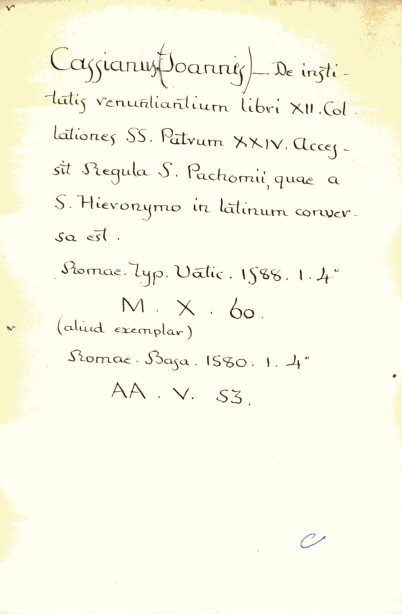 Cassianus (Joannis) — De insti-
tutis renuntiantium libri XII. Col-
lationes SS. Patrum XXIV. Acces-
sit Regula S. Pachomii, quae a
S. Hieronymo in latinum conver-
sa est.
Romae. Typ. Vatic. 1588. 1. 4°
M. X. 60.
(aliud exemplar)
Romae. Basa. 1580. 1. 4°
AA. V. 53.
C